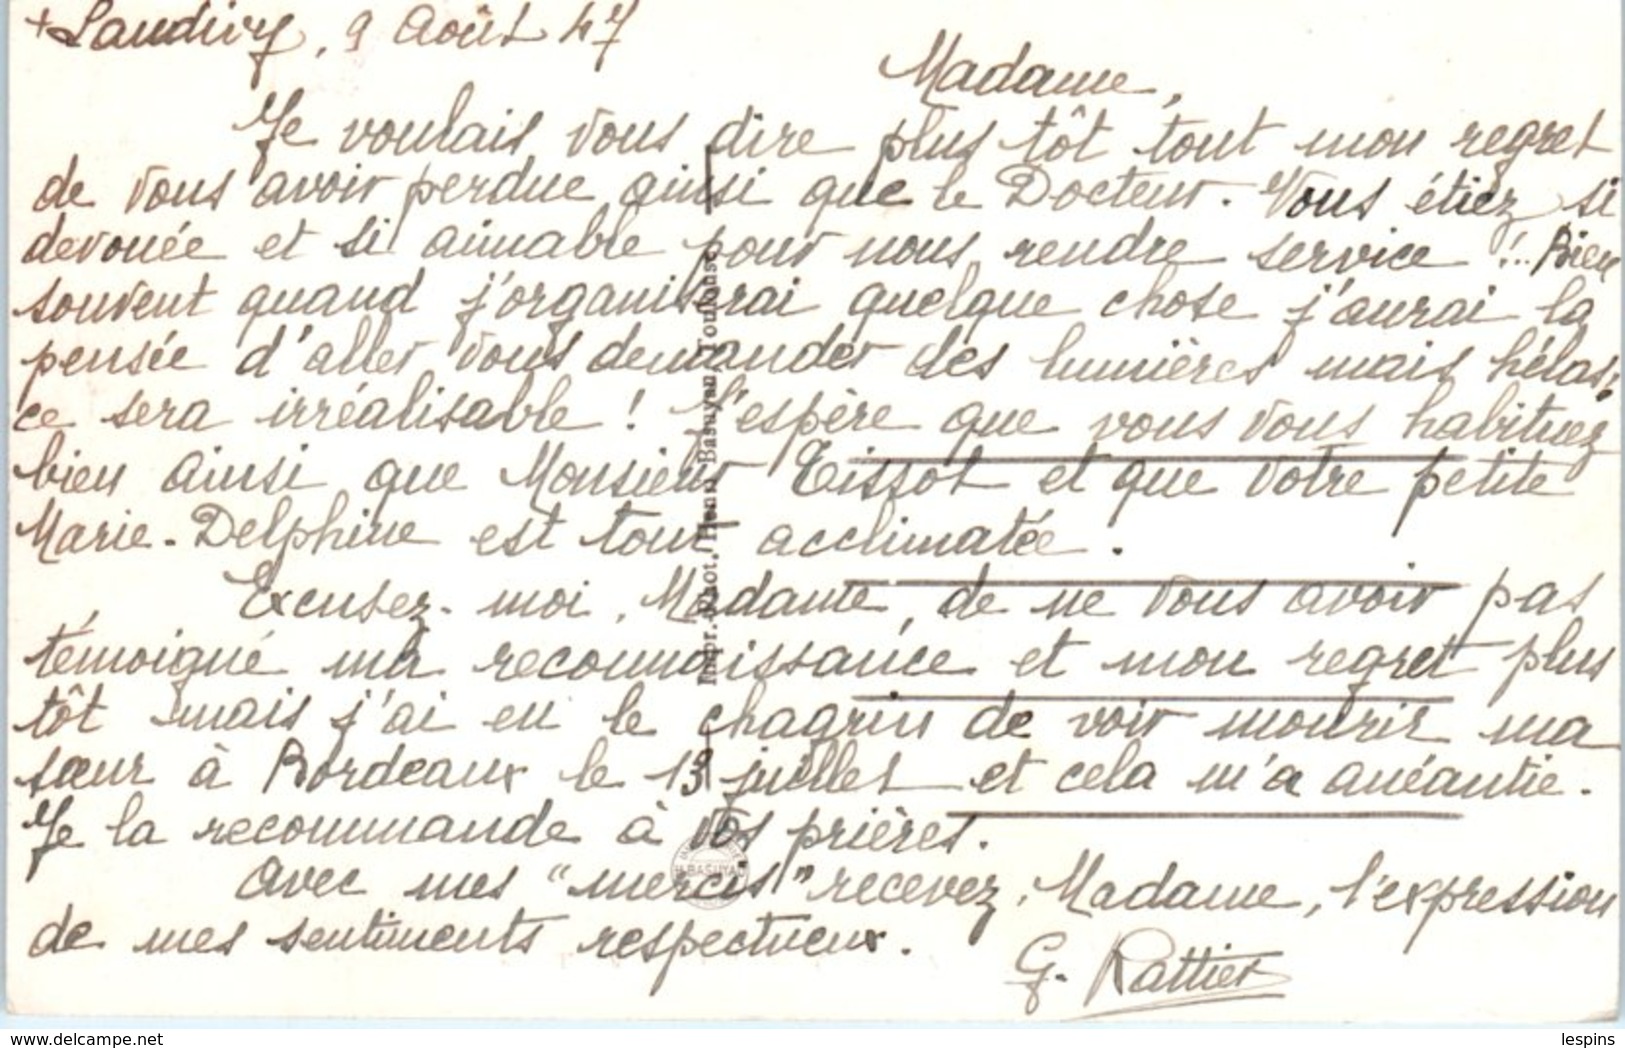 + Landivy, 9 Août 47
Madame,
Je voulais vous dire plus tôt tout mon regret
de vous avoir perdue ainsi que le Docteur. Vous étiez si
dévouée et si aimable pour nous rendre service !.. Bien
souvent quand j'organiserai quelque chose j'aurai la
pensée d'aller vous demander des lumières mais hélas!
ce sera irréalisable ! J'espère que vous vous habituez
bien ainsi que Monsieur Tissot et que votre petite
Marie-Delphine est tout acclimatée.
Excusez-moi, Madame, de ne vous avoir pas
témoigné ma reconnaissance et mon regret plus
tôt mais j'ai eu le chagrin de voir mourir ma
sœur à Bordeaux le 13 juillet et cela m'a anéantie.
Je la recommande à vos prières.
Avec mes "mercis" recevez, Madame, l'expression
de mes sentiments respectueux.
G. Rattier
Impr. Phot. Henri Basuyau, Toulouse
H. BASUYAU
lespins